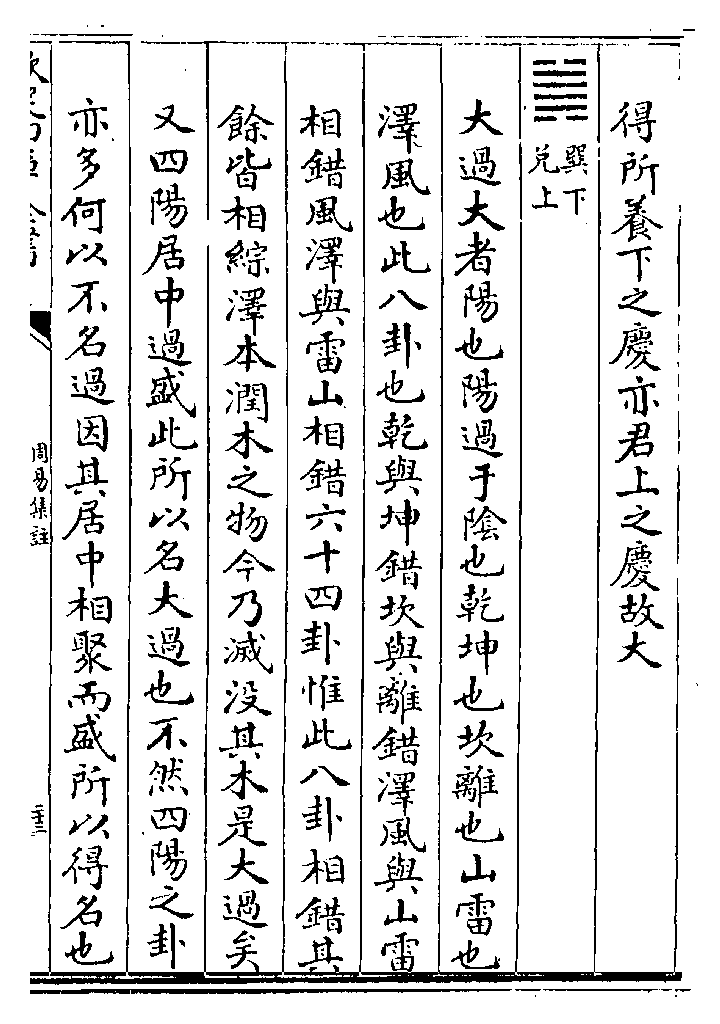 得所養下之慶亦君上之慶故大
巽下
兌上
大過大者陽也陽過于陰也乾坤也坎離也山雷也
澤風也此八卦也乾與坤錯坎與離錯澤風與山雷
相錯風澤與雷山相錯六十四卦惟此八卦相錯其
餘皆相綜澤本潤木之物今乃滅沒其木是大過矣
又四陽居中過盛此所以名大過也不然四陽之卦
亦多何以不名過因其居中相聚而盛所以得名也
欽定四庫全書
周易集註